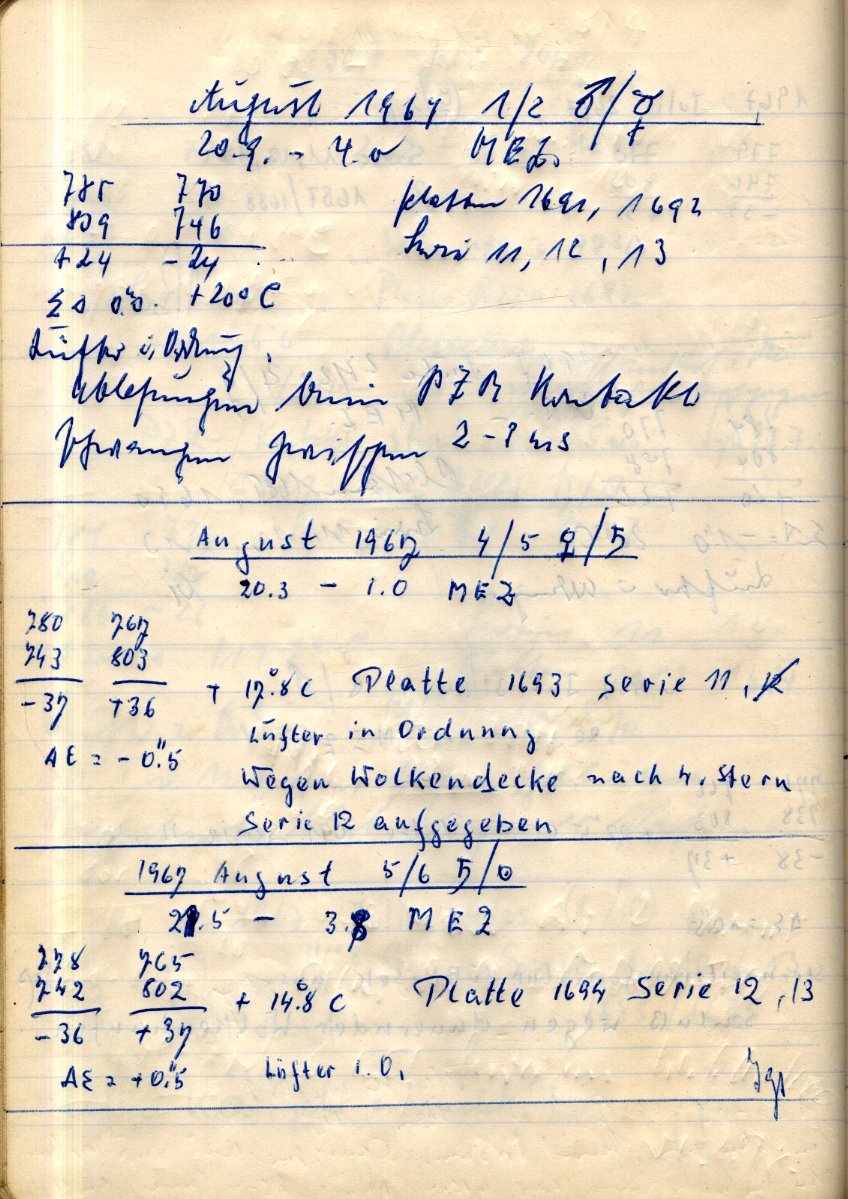 August 1967 1/2 ♂/☿
20.9. – 4.0 MEZ.
785 770
809 746 Platten 1691, 1692
+24 –24 Serie 11, 12, 13
0."0. +20°C
Lüfter i. Ordnung.
Ablesungen beim PZR Kontakt
schwanken zwischen 2–3 ms
August 1967 4/5 ♀/♄
20.3 – 1.0 MEZ
780 767
743 803
–37 +36 + 17.°8 C Platte 1693 Serie 11, 12
Lüfter in Ordnung
Δε = – 0."5
Wegen Wolkendecke nach 4. Stern
Serie 12 aufgegeben
1967 August 5/6 ♄/☉
21.5 – 3.8 MEZ
778 765
742 802 + 14.°8 C Platte 1694 Serie 12, 13
–36 +37
Δε = +0."5 Lüfter i.O.